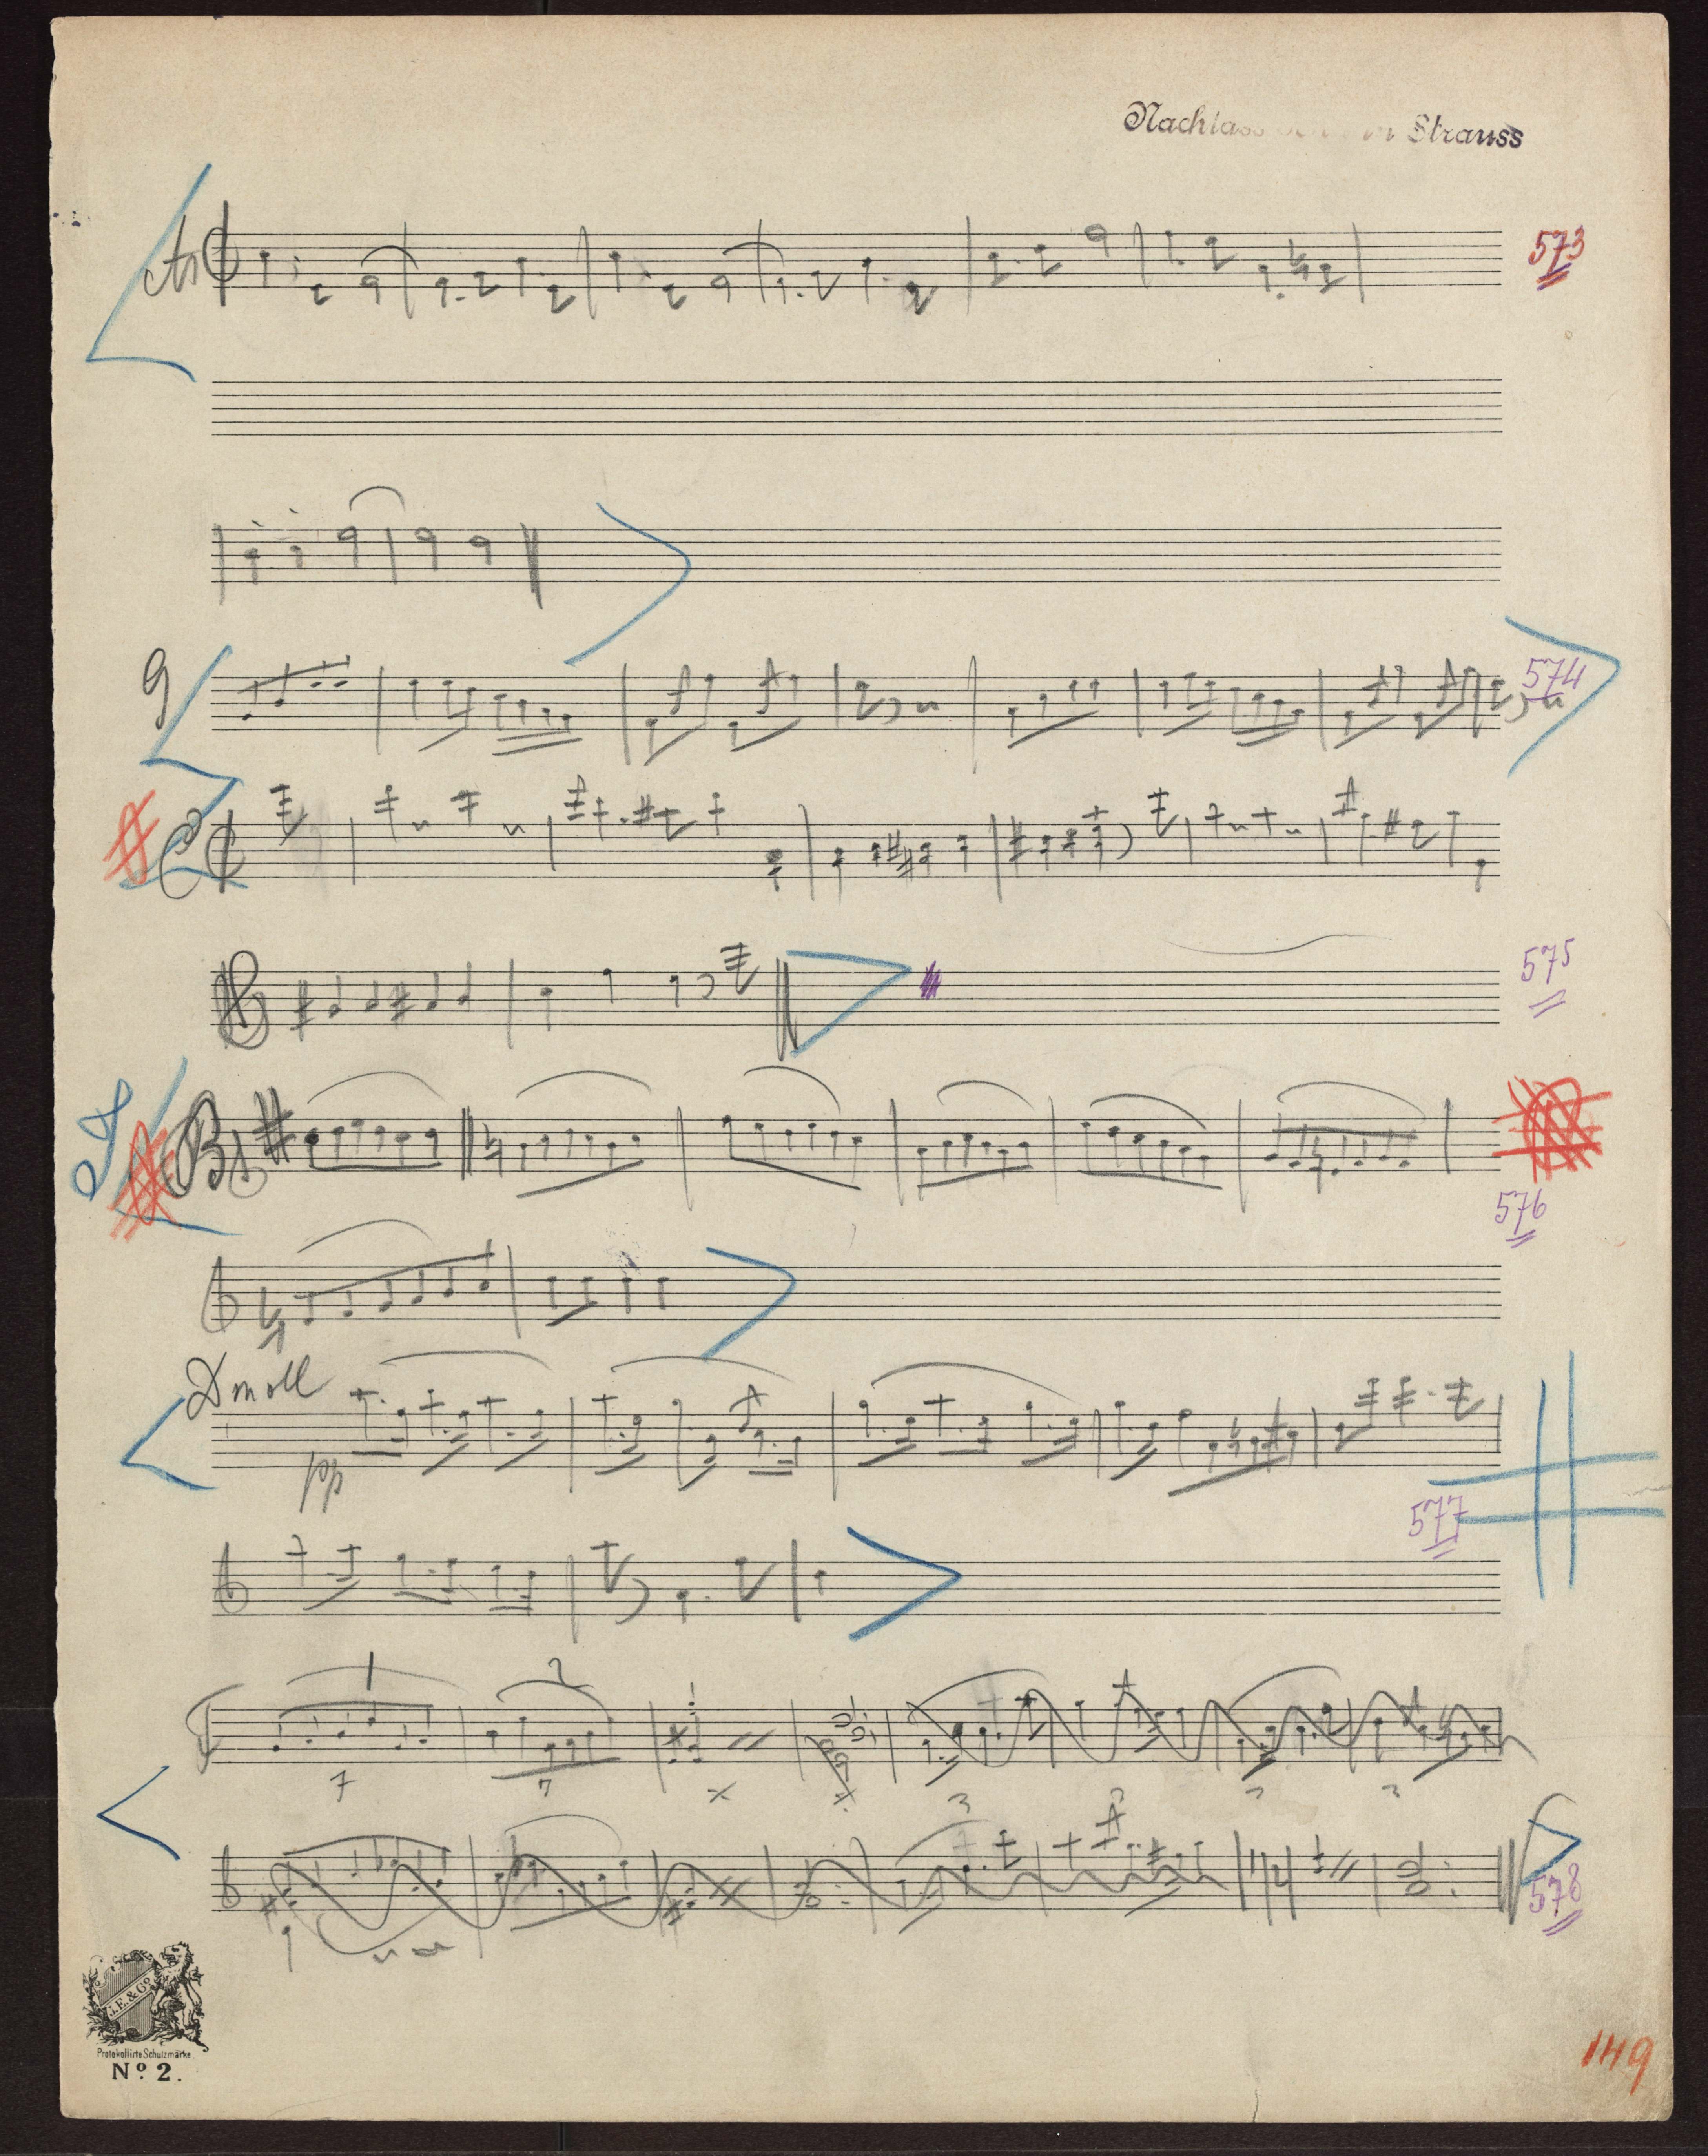 Nachlass Strauss
As
573
G
574
C
575
B
576
D moll
pp
577
1
2
7
7
3
578
J.E. & Co
Protokollirte Schutzmarke.
No. 2.
149